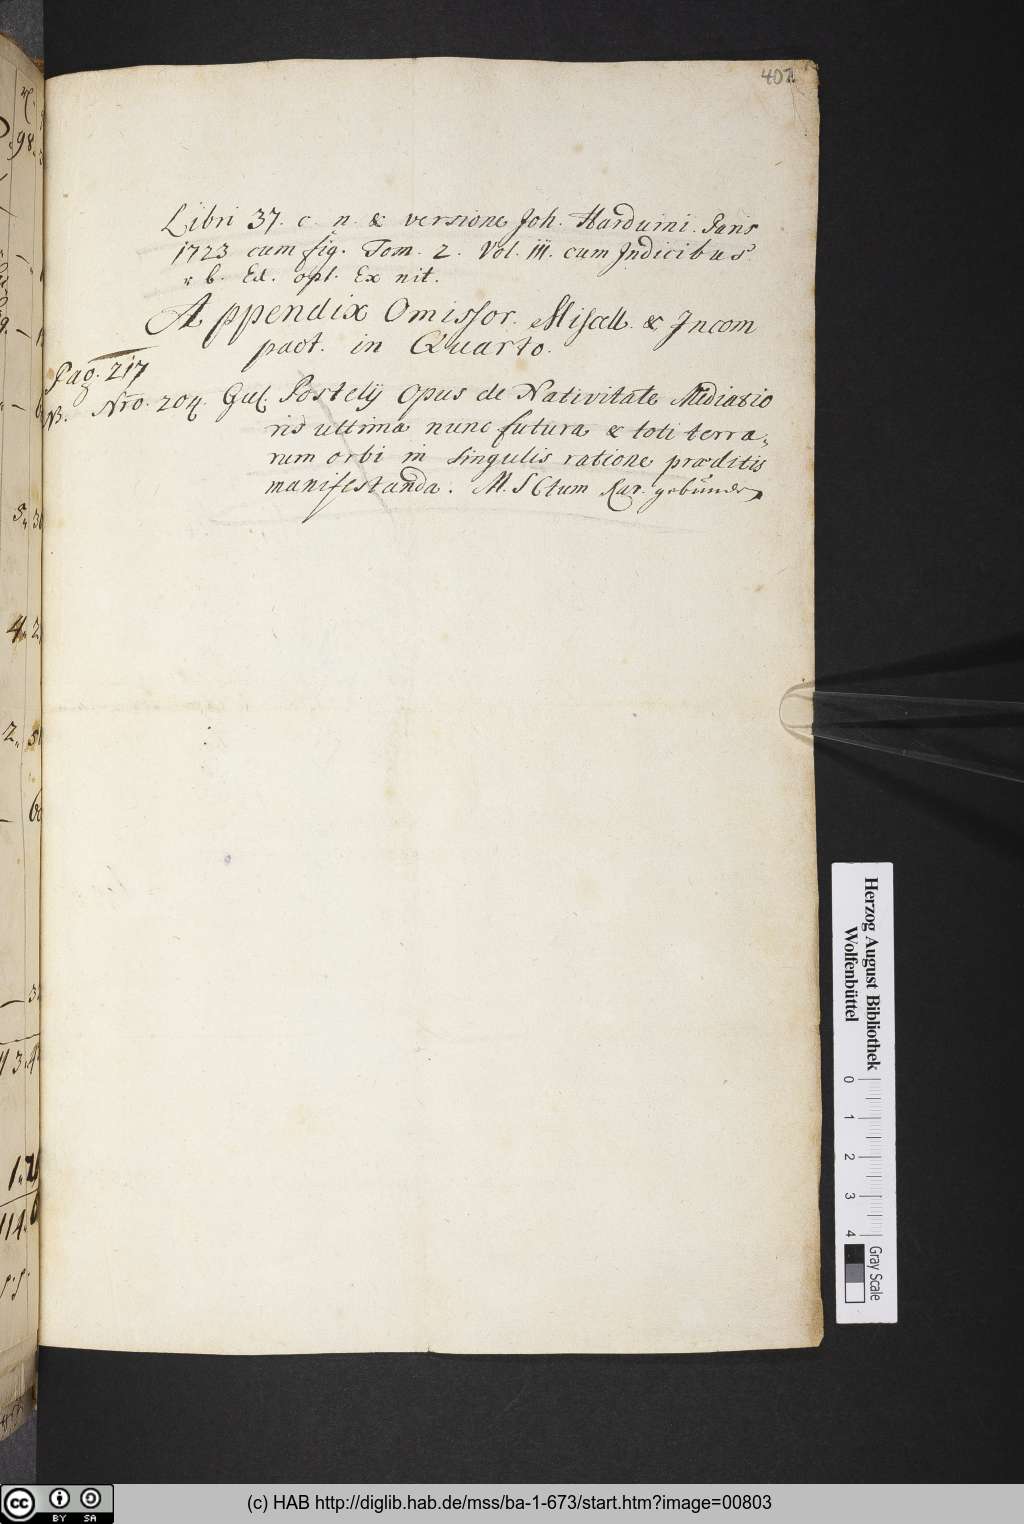 407
Libri 37. c. n. & versione Joh. Harduini. Paris
1723 cum fig. Tom. 2. Vol. III. cum Indicibus
r b. Ed. opt. Ex nit.
Appendix Omissor. Miscell. & Incom
pact. in Quarto.
Pag. 217
NB. Nro. 204. Guil. Postelij Opus de Nativitate Mediatio
ris ultima nunc futura & toti terra„
rum orbi in singulis ratione præditis
manifestanda. M. SCtum Rar. gebunden
98
5„
4„ 2
2„
3
1„
114„
Herzog August Bibliothek
Wolfenbüttel
0 1 2 3 4
Gray Scale
cc BY SA
(c) HAB http://diglib.hab.de/mss/ba-1-673/start.htm?image=00803